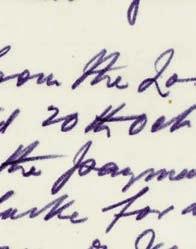 from the Lo
d 20th Oct
the payme
larke for a